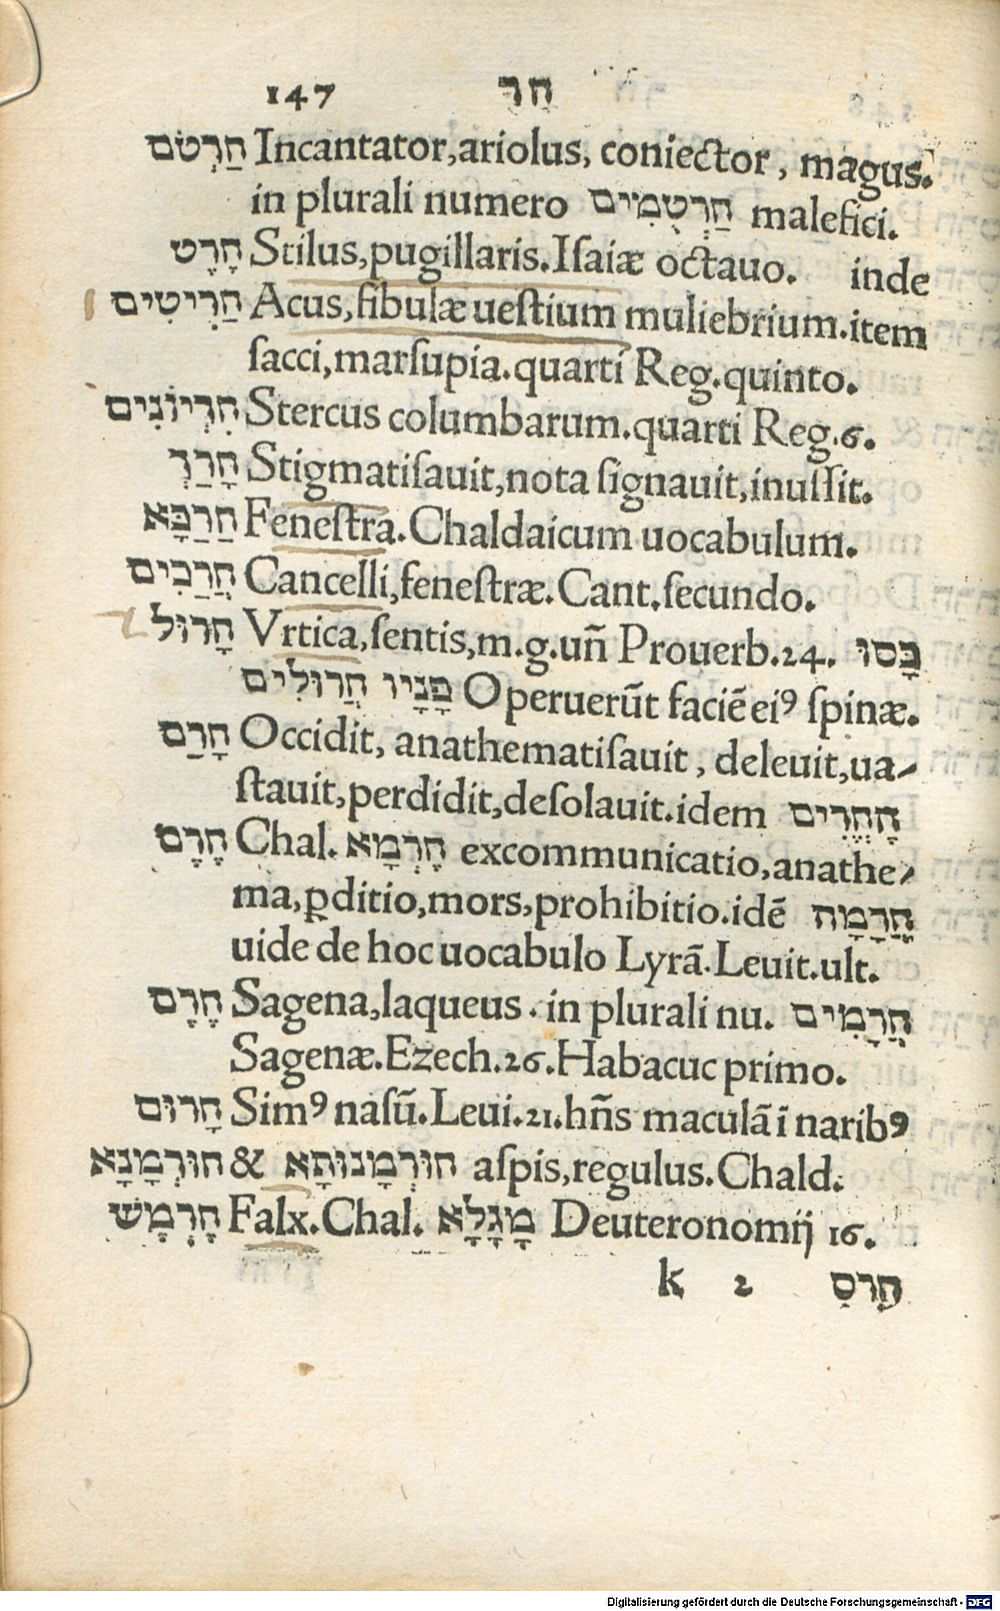 147 חר
חַרְטֹם Incantator,ariolus, coniector, magus.
in plurali numero חַרְטֻמִּים malefici.
חֶרֶט Stilus,pugillaris.Iſaiæ octauo. inde
חַרִיטִים Acus,fibulæ ueſtium muliebrium.item
ſacci,marſupia.quarti Reg.quinto.
חִרְיוֹנִים Stercus columbarum.quarti Reg.6.
חָרַךְ Stigmatiſauit,nota ſignauit,inuſſit.
חַרַכָּא Feneſtra.Chaldaicum uocabulum.
חֲרַכִּים Cancelli,feneſtræ.Cant.ſecundo.
חָרוּל Vrtica,ſentis,m.g.uñ Prouerb.24. כָּסוּ
פָנָיו חֲרוּלִים Operuerũt faciẽ eiꝰ ſpinæ.
חָרַם Occidit, anathematiſauit, deleuit,ua⸗
ſtauit,perdidit,deſolauit.idem הֶחֱרִים
חֶרֶם Chal. חֶרְמָא excommunicatio,anathe⸗
ma,ꝑditio,mors,prohibitio.idẽ חֲרָמָה
uide de hoc uocabulo Lyrã.Leuit.ult.
חֶרֶם Sagena,laqueus. in plurali nu. חֲרָמִים
Sagenæ.Ezech.26.Habacuc primo.
חָרוּם Simꝰ naſũ.Leui.21.hñs maculã ĩ naribꝰ
חוּרְמָנָא & חוּרְמָנוּתָא aſpis,regulus.Chald.
חֶרְמֶשׁ Falx.Chal. מַגָּלָא Deuteronomij 16.
k 2 חרס
Digitalisierung gefördert durch die Deutsche Forschungsgemeinschaft - DFG